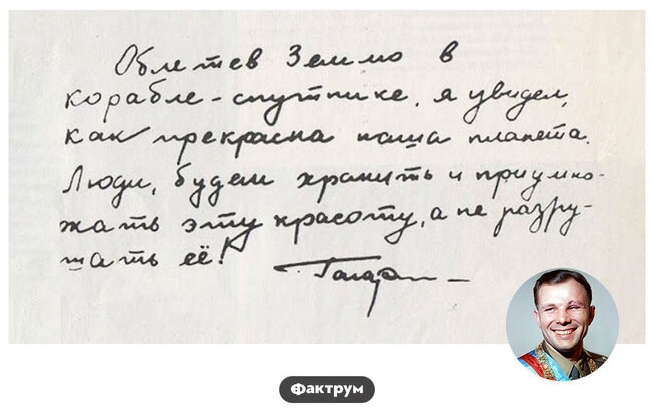 Облетев Землю в
корабле-спутнике, я увидел,
как прекрасна наша планета.
Люди, будем хранить и приумно-
жать эту красоту, а не разру-
шать её!
Гагарин
Фактрум